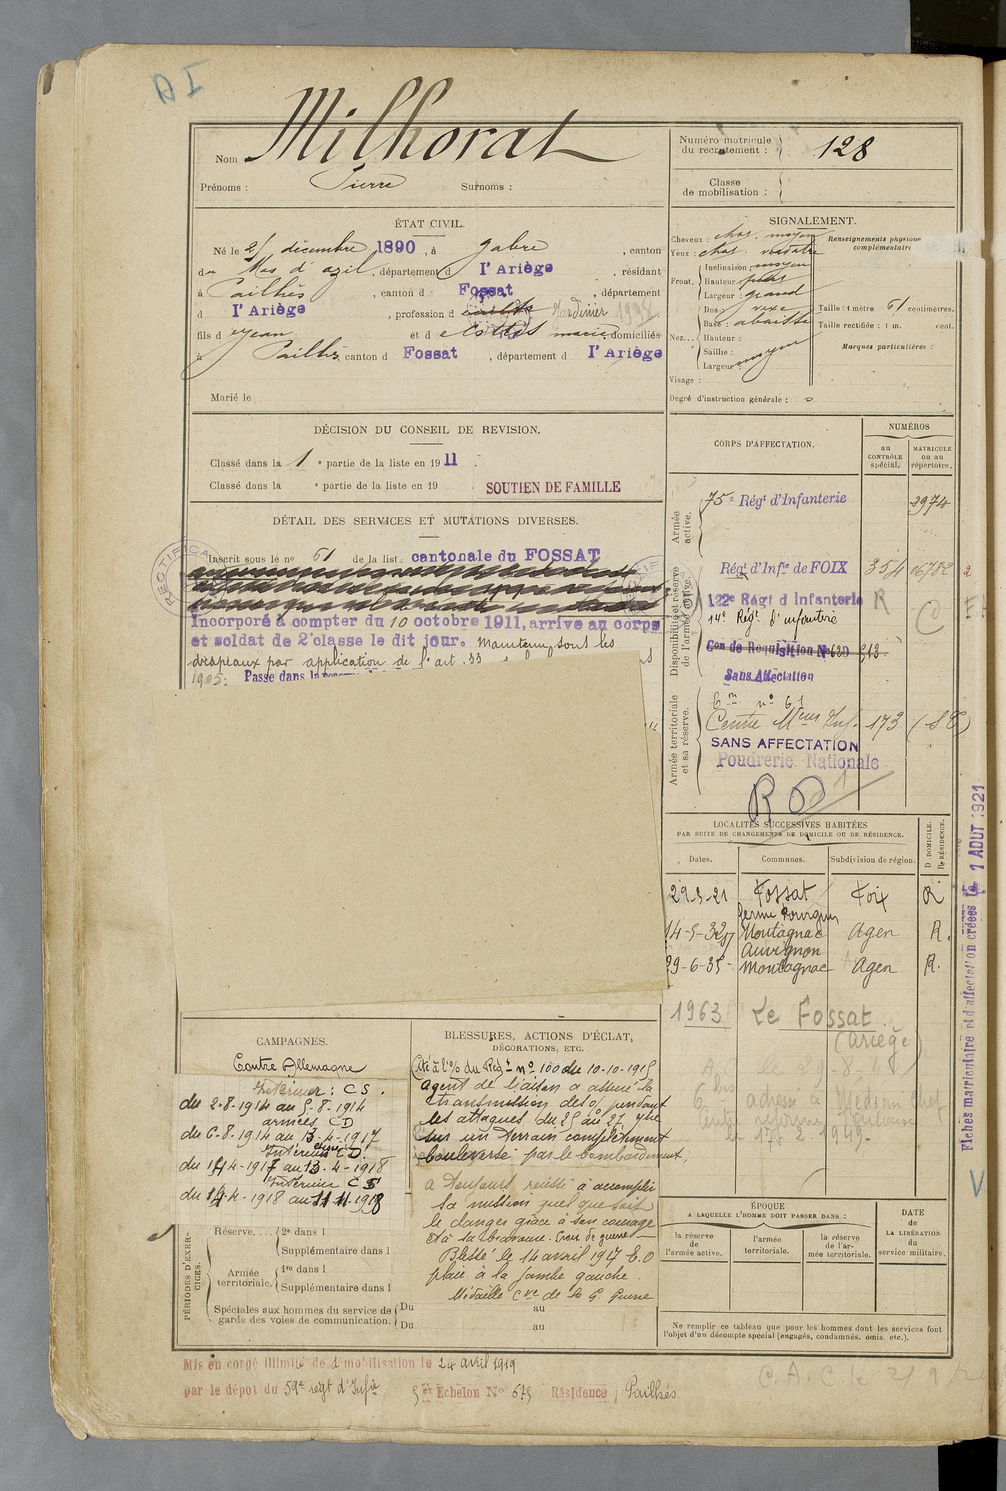 Milhorat
Nom
Prénoms : Pierre Surnoms :
Numéro matricule du recrutement : 128
Classe de mobilisation :
ÉTAT CIVIL.
Né le décembre 1890, à Gabre, canton
du Mas d'azil, département d l'Ariège, résidant
à Pailhès, canton d Fossat, département
d l'Ariège, profession d Jardinier
fils d Jean et d marie, domiciliés
à Pailhès, canton d Fossat, département d l'Ariège
Marié le
SIGNALEMENT.
Cheveux : chat. moyen
Yeux : chat.
Front. Inclinaison moyen
Hauteur
Largeur : grand
Nez... Dos :
Base : abaissée
Hauteur :
Saillie :
Largeur moyen
Visage :
Degré d'instruction générale :
Renseignements physionomiques complémentaires
Taille : 1 mètre 61 centimètres.
Taille rectifiée : 1 m. cent.
Marques particulières :
DÉCISION DU CONSEIL DE REVISION.
Classé dans la 1 e partie de la liste en 1911.
Classé dans la e partie de la liste en 19
SOUTIEN DE FAMILLE
DÉTAIL DES SERVICES ET MUTATIONS DIVERSES.
Inscrit sous le n° 61 de la liste cantonale du FOSSAT
Incorporé à compter du 10 octobre 1911, arrivé au corps
et soldat de 2e classe le dit jour. Maintenu sous les
drapeaux par application de l'art. 33
Passe dans la
CORPS D'AFFECTATION.
NUMÉROS
au contrôle spécial.
matricule ou au répertoire.
Armée active.
75e Régt d'Infanterie 2974
Disponibilité et réserve de l'armée active.
Régt d'Infie de FOIX 354
122e Régt d'Infanterie R
14e Régt d'infanterie
Con de Réquisition N°620 513
Sans Affectation
Armée territoriale et sa réserve.
n° 61
Centre Meus Inf. 173
SANS AFFECTATION
Poudrerie Nationale
LOCALITÉS SUCCESSIVES HABITÉES
PAR SUITE DE CHANGEMENTS DE DOMICILE OU DE RÉSIDENCE.
Dates. Communes. Subdivision de région. D. DOMICILE. R. RÉSIDENCE.
Fossat Foix R
Montagnac Agen R.
Auvignon
29-6-35 Montagnac Agen R.
1963 Le Fossat
(Ariège)
Fiches matriculaire et d'affectation créées le 1 AOUT 1921
CAMPAGNES.
Contre Allemagne
Intérieur : CS.
du 2-8-1914 au 5-8-1914
armées CD
du 6-8-1914 au 13-4-1917
Intérieur CD.
du 14-4-1917 au 13-4-1918
Intérieur CS
du 14-4-1918 au 11-11-1918
BLESSURES, ACTIONS D'ÉCLAT,
DÉCORATIONS, ETC.
Cité à l'O/ du Régt n° 100 du 10-10-1915
agent de liaison a assuré la
transmission des o/ pendant
les attaques du 25 au 27 7bre
sur un terrain complètement
bouleversé par le bombardement,
a toujours réussi à accomplir
sa mission quel que soit
le danger grâce à son courage
et à sa bravoure. Croix de guerre
Blessé le 14 avril 1917 E.O
plaie à la jambe gauche.
Médaille Cve de la G. Guerre
PÉRIODES D'EXERCICES.
Réserve.... 2e dans l
Supplémentaire dans l
Armée territoriale. 1re dans l
Supplémentaire dans l
Spéciales aux hommes du service de garde des voies de communication.
Du au
Du au
ÉPOQUE
A LAQUELLE L'HOMME DOIT PASSER DANS :
la réserve de l'armée active.
l'armée territoriale.
la réserve de l'armée territoriale.
DATE de LA LIBÉRATION du service militaire.
Ne remplir ce tableau que pour les hommes dont les services font
l'objet d'un décompte spécial (engagés, condamnés, omis, etc.).
Mis en congé illimité de démobilisation le 24 avril 1919
par le dépôt du 59e régt d'Infie Echelon N° 675 Résidence Pailhès